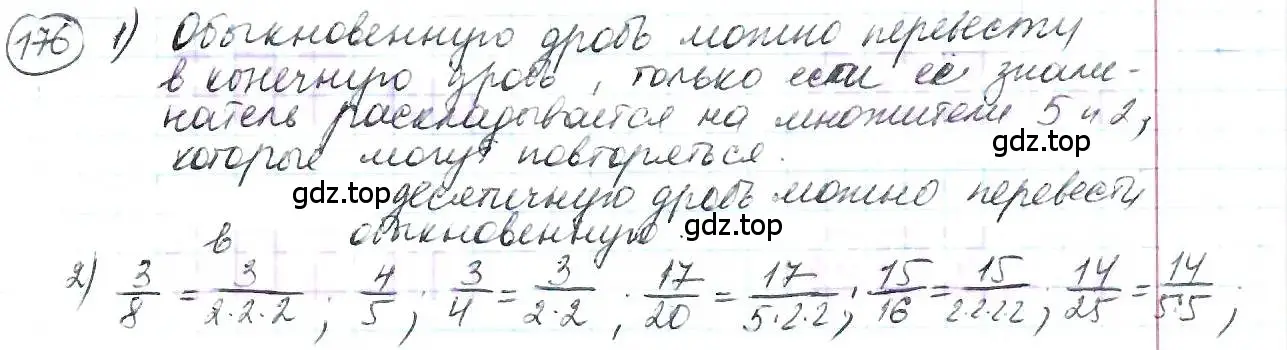 176 1) Обыкновенную дробь можно перевести
в конечную дробь, только если её знаме-
натель раскладывается на множители 5 и 2,
которые могут повторяться.
gdz.top
gdz.top
десятичную дробь можно перевести
в обыкновенную.
gdz.top
2) 3/8 = 3/(2·2·2); 4/5; 3/4 = 3/(2·2); 17/20 = 17/(5·2·2); 15/16 = 15/(2·2·2·2); 14/25 = 14/(5·5);